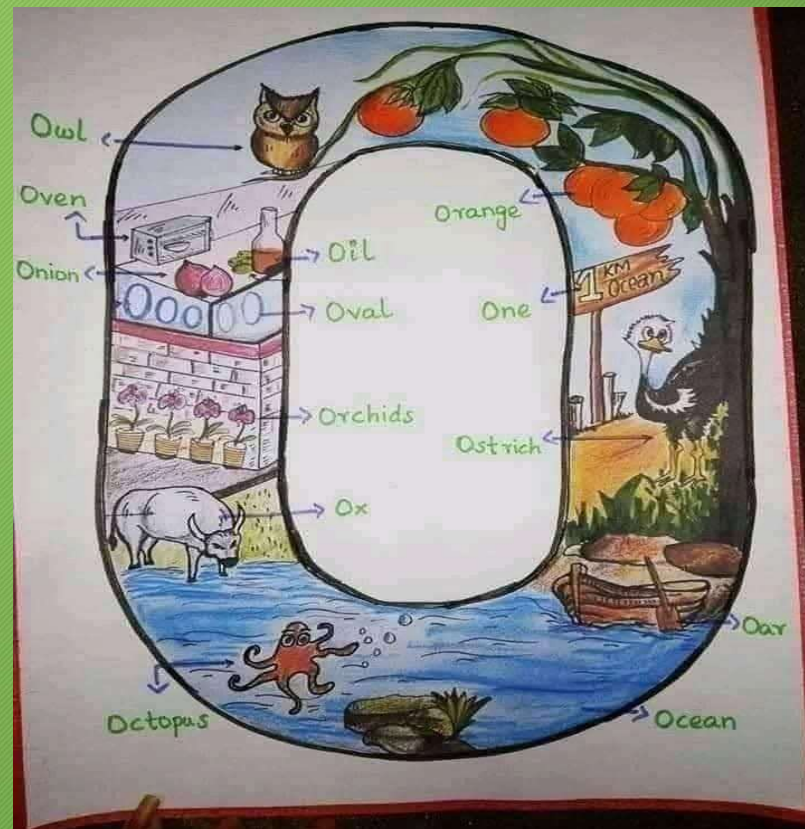 Owl
Oven
Onion
Oil
Oval
Orchids
Ox
Octopus
Orange
One
1 KM
Ocean
Ostrich
Oar
Ocean